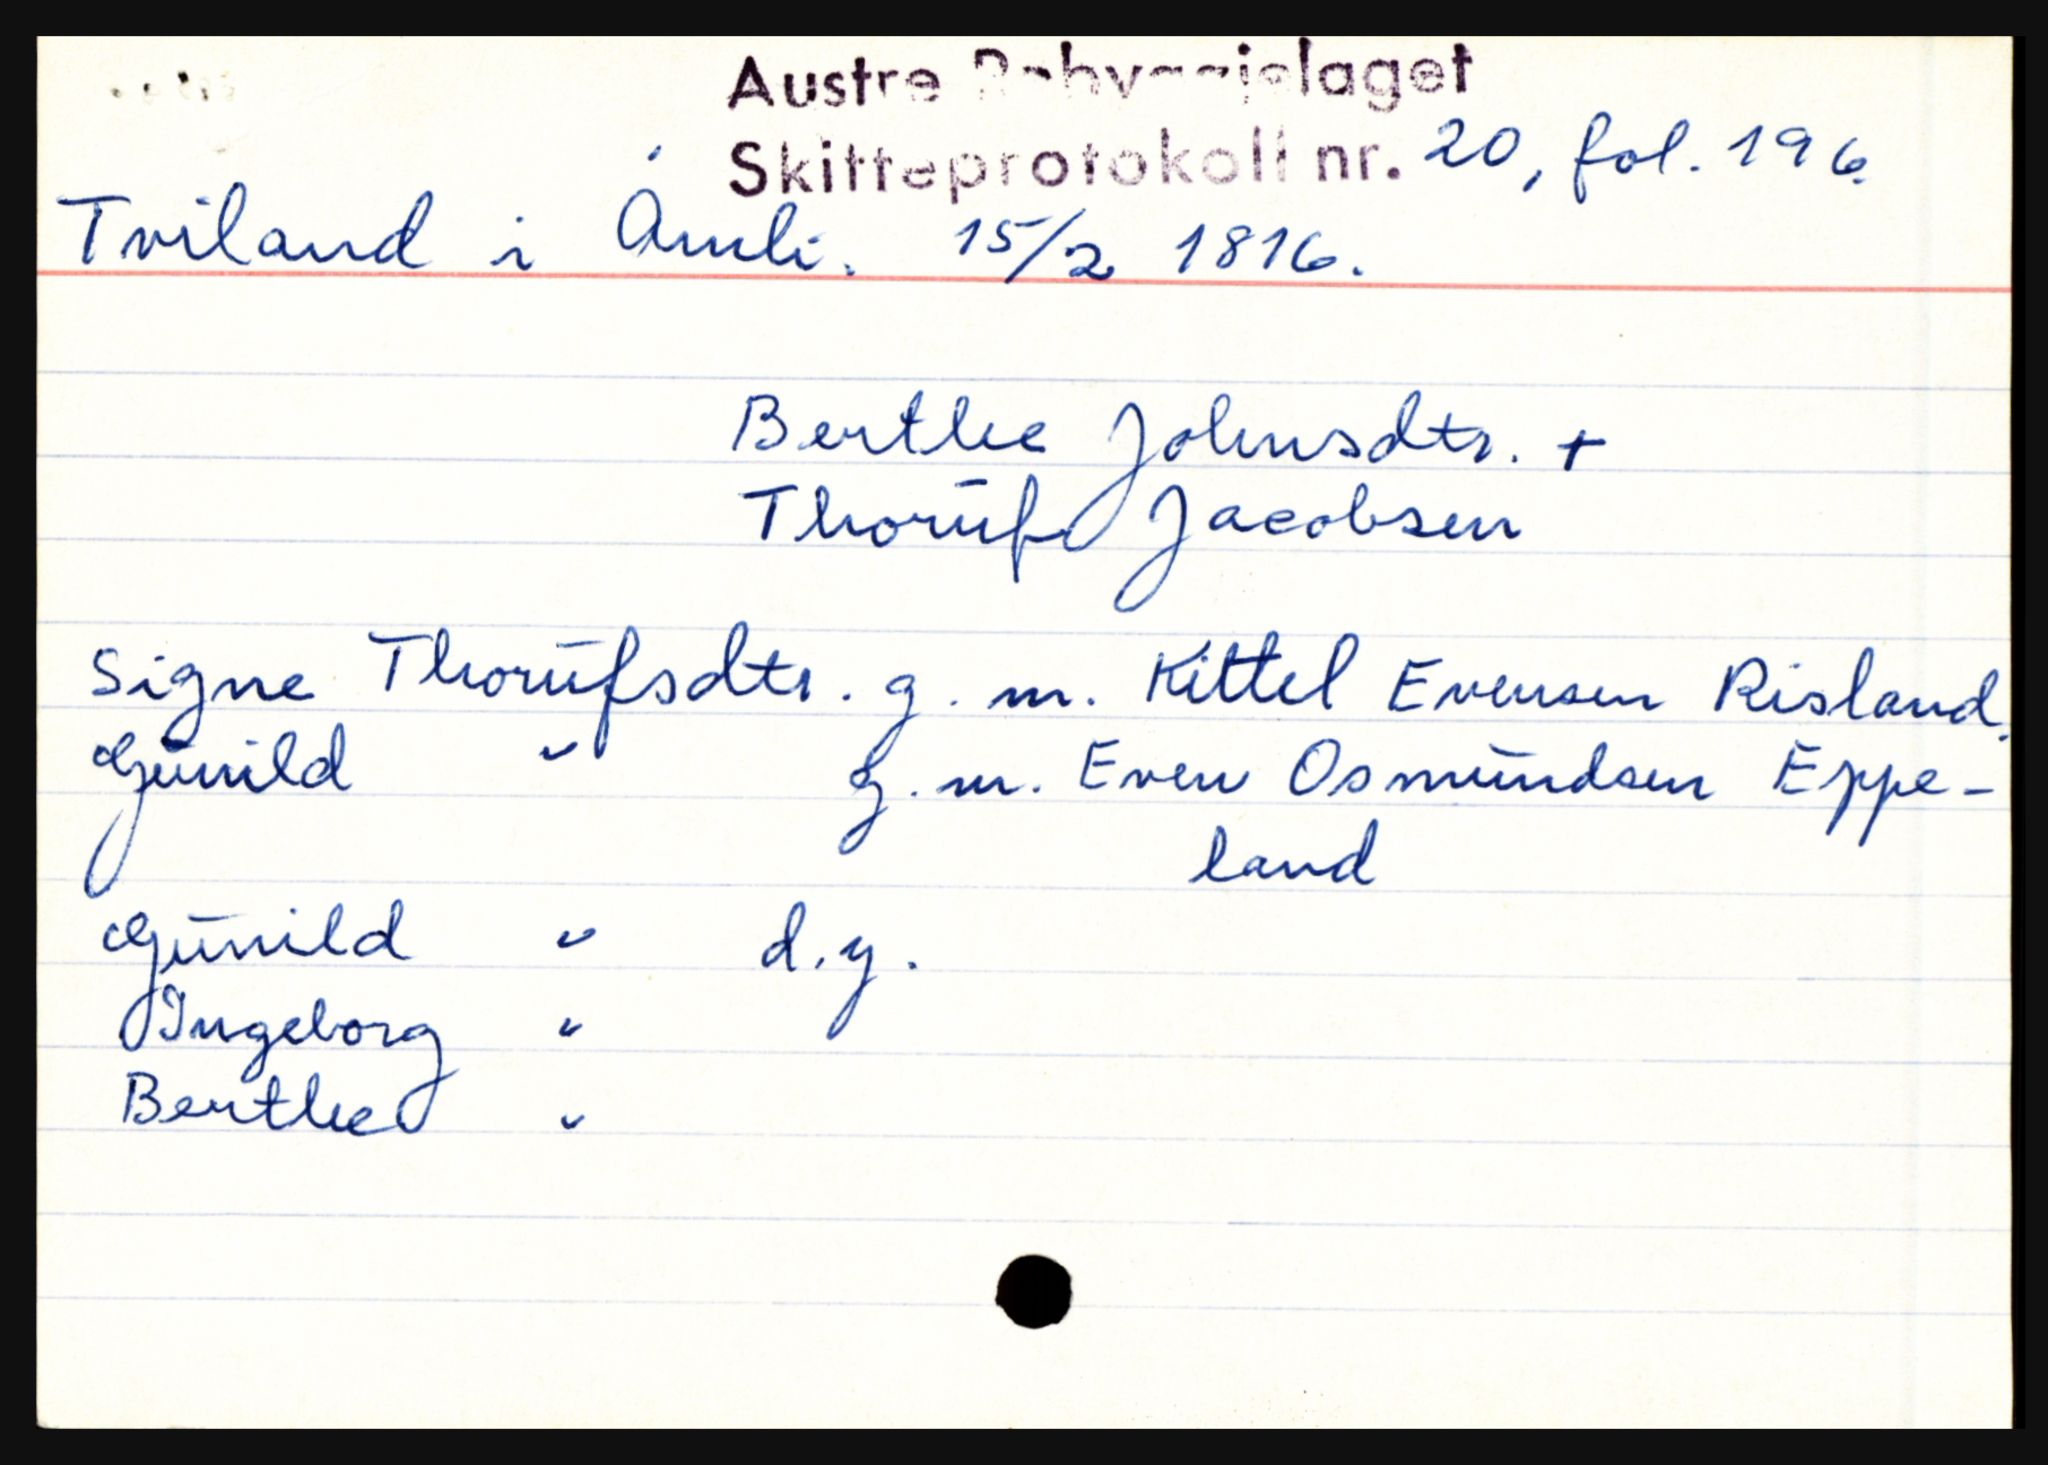 Austre Robyggjelaget
Skifteprotokoll nr. 20, fol. 196.
Tviland i Åmli. 15/2 1816.
Berthe Johnsdtr. +
Thorúf Jacobsen
Signe Thorúfsdtr. g. m. Kittel Evensen Risland.
Gúnild " g. m. Even Osmúndsen Eppe-
land
Gúnild " d.y.
Ingeborg "
Berthe "